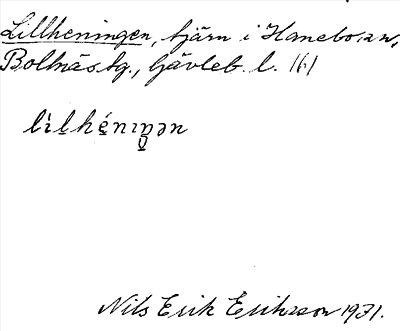 Lillheningen, tjärn i Hanebo sn,
Bollnäs tg., Gävleb. l. 161
lìlhénıŋən
Nils Erik Eriksson 1931.